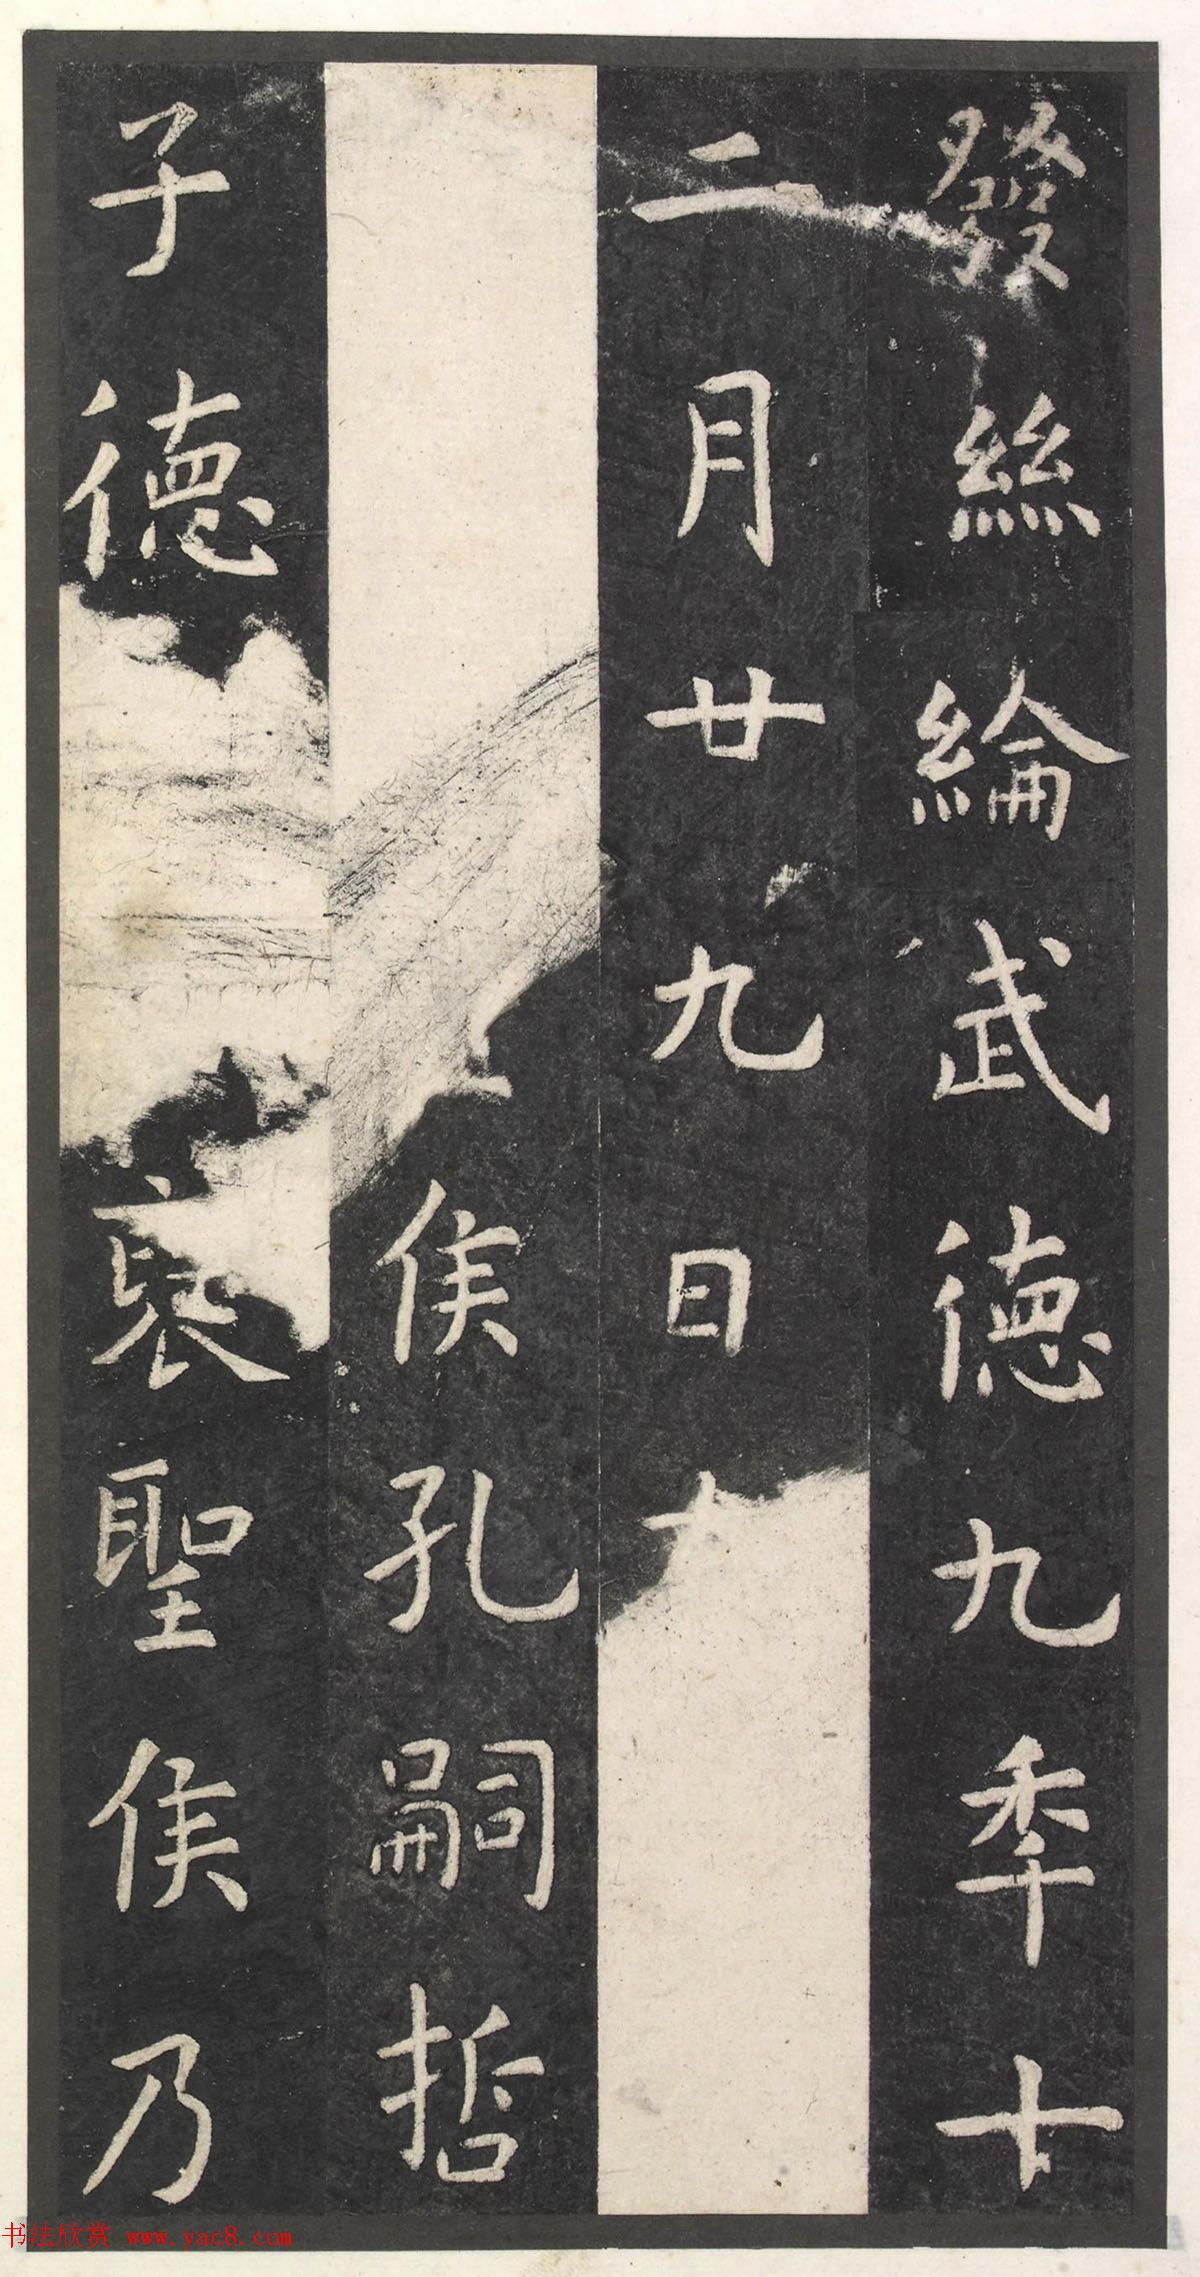 發絲綸武德九秊十
二月廿九日
侯孔嗣哲
子德褎聖侯乃
书法欣赏 www.yac8.com